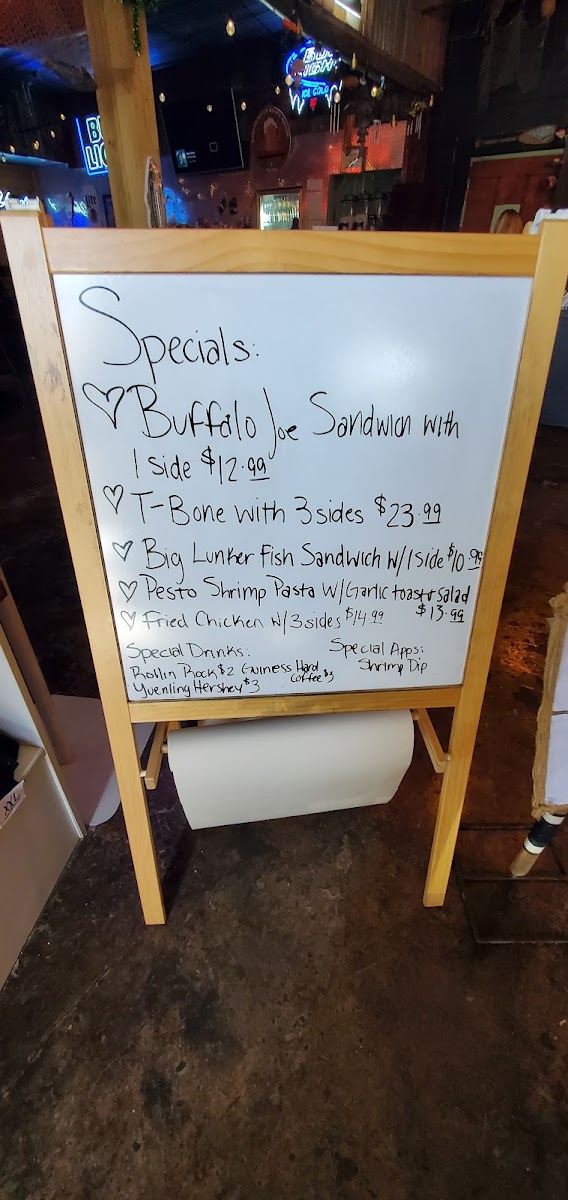 Specials:
Buffalo Joe Sandwich with
1 side $12.99
T-Bone with 3 sides $23.99
Big Lunker Fish Sandwich w/1 side $10.99
Pesto Shrimp Pasta w/Garlic toast + Salad
$13.99
Fried Chicken w/3 sides $14.99
Special Drinks:
Rollin Rock $2 Guiness Hard
Coffee $3
Yuenling Hershey $3
Special Apps:
Shrimp Dip
XXL
ICE COLD